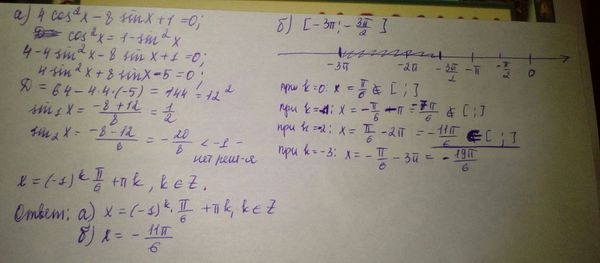 а) 4 cos²x - 8 sinx + 1 = 0;
cos²x = 1 - sin²x
4 - 4 sin²x - 8 sinx + 1 = 0;
4 sin²x + 8 sinx - 5 = 0
D = 64 - 4·4·(-5) = 144 = 12²
sin₁x = (-8+12)/8 = 1/2
sin₂x = (-8-12)/8 = -20/8 < -1 -
нет реш-я
x = (-1)^k π/6 + πk, k ∈ Z.
Ответ: а) x = (-1)^k · π/6 + πk, k ∈ Z
б) x = -11π/6
б) [-3π; -3π/2]
-3π -2π -3π/2 -π -π/2 0
при k=0: x = π/6 ∉ [ ; ]
при k=-1: x = -π/6 - π = -7π/6 ∉ [ ; ]
при k=-2: x = π/6 - 2π = -11π/6 ∈ [ ; ]
при k=-3: x = -π/6 - 3π = -19π/6